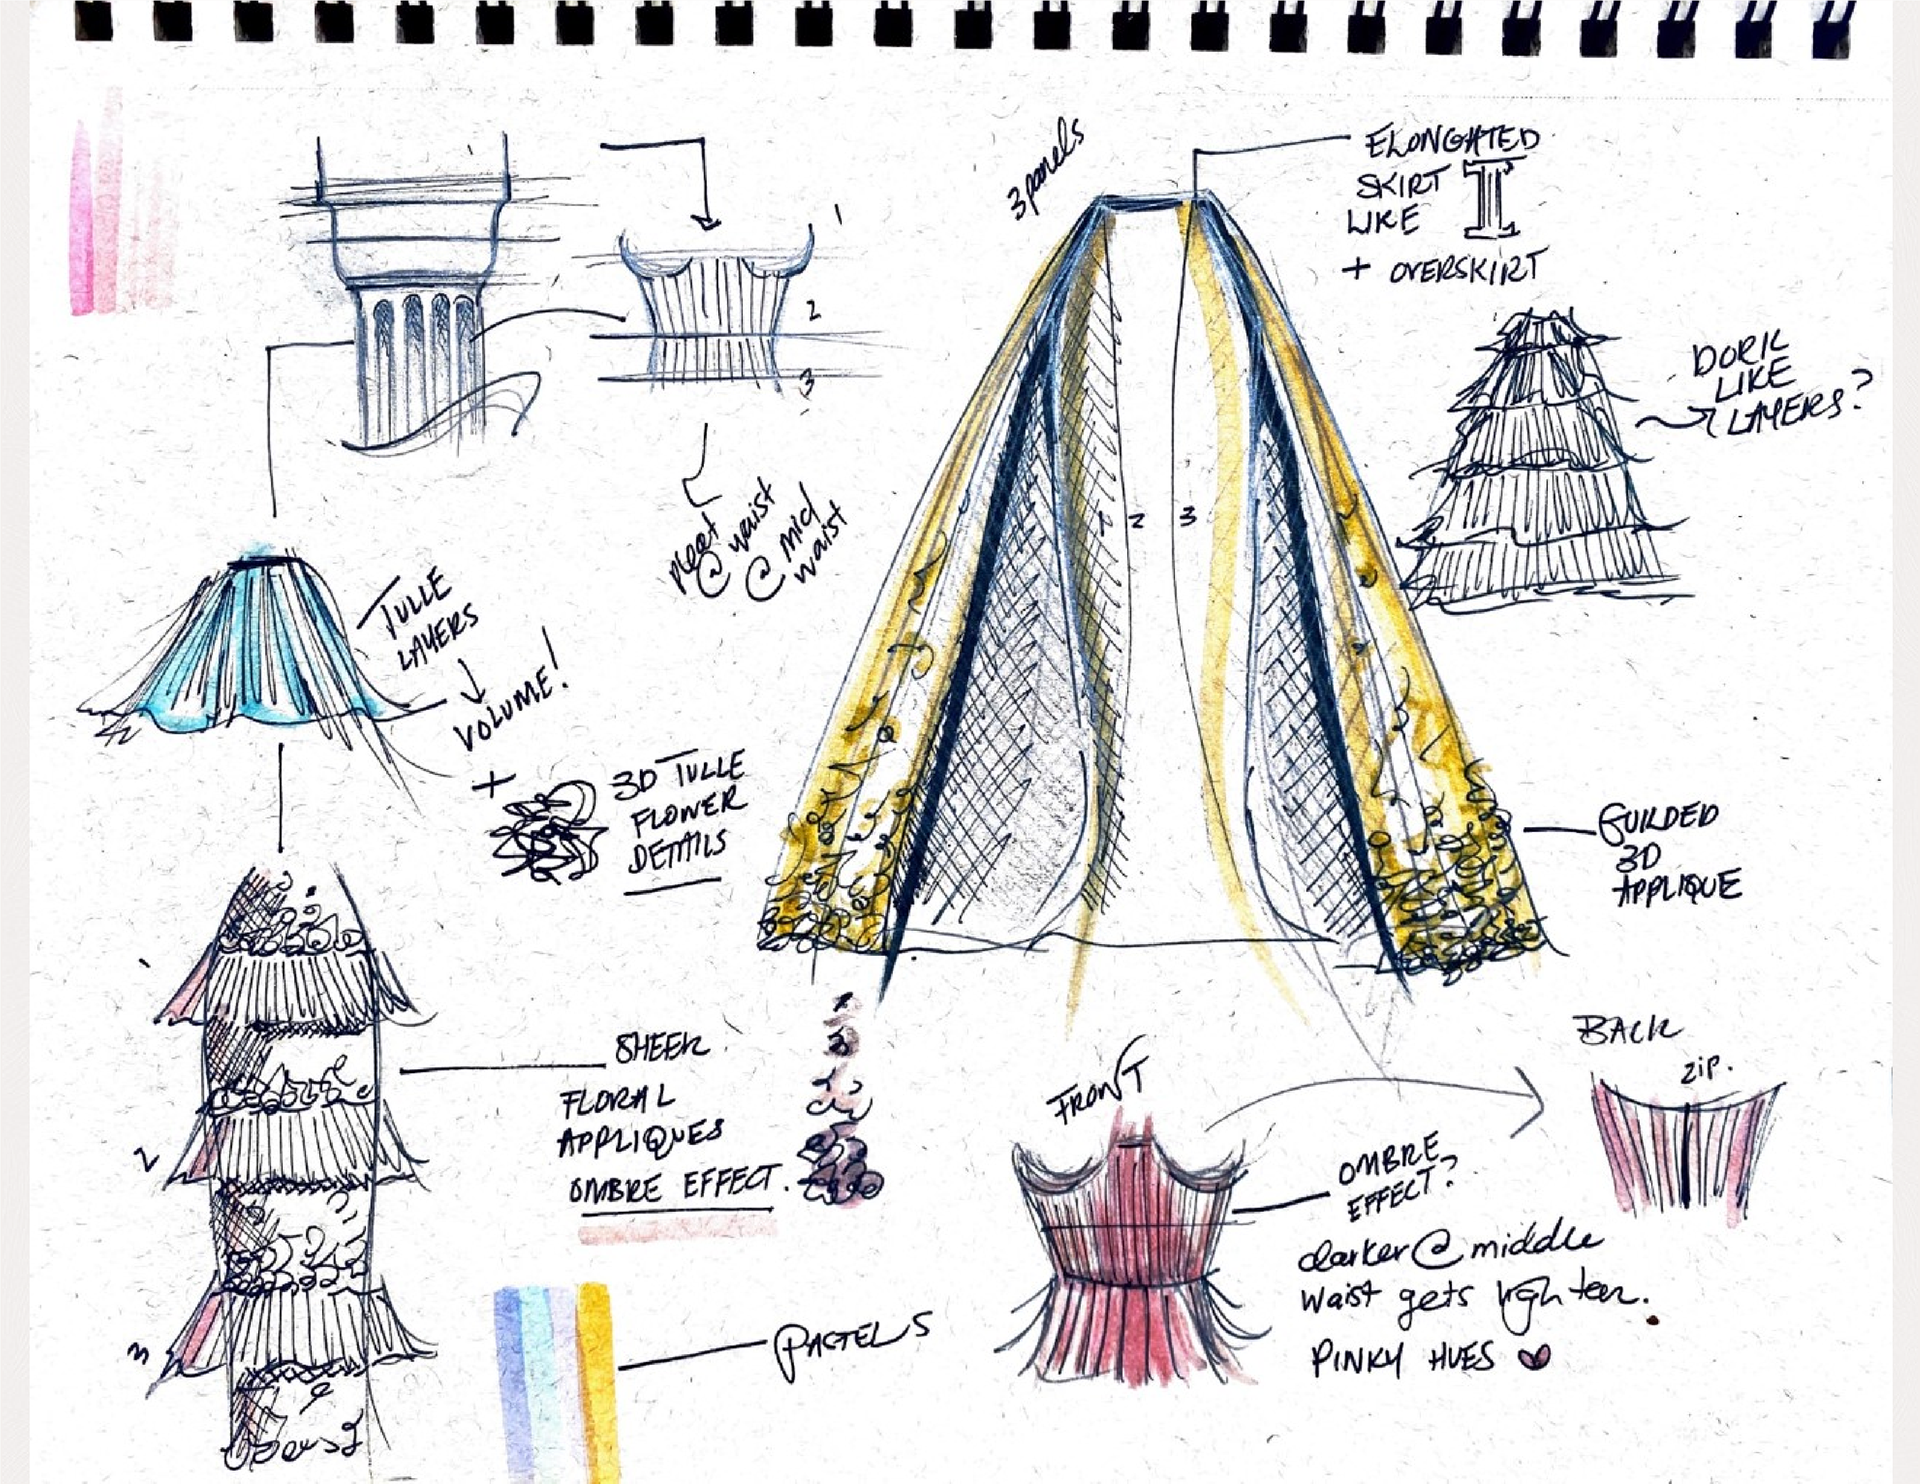 3 panels
ELONGATED
SKIRT
LIKE
+ OVERSKIRT
1
2
3
DORIC
LIKE
LAYERS?
@ waist
@ mid
waist
2
3
TULLE
LAYERS
VOLUME!
+
3D TULLE
FLOWER
DETAILS
GUILDED
3D
APPLIQUE
SHEER
FLORAL
APPLIQUES
OMBRE EFFECT.
2
3
PASTELS
FRONT
BACK
ZIP.
OMBRE
EFFECT?
darker @ middle
waist gets lighter.
PINKY HUES